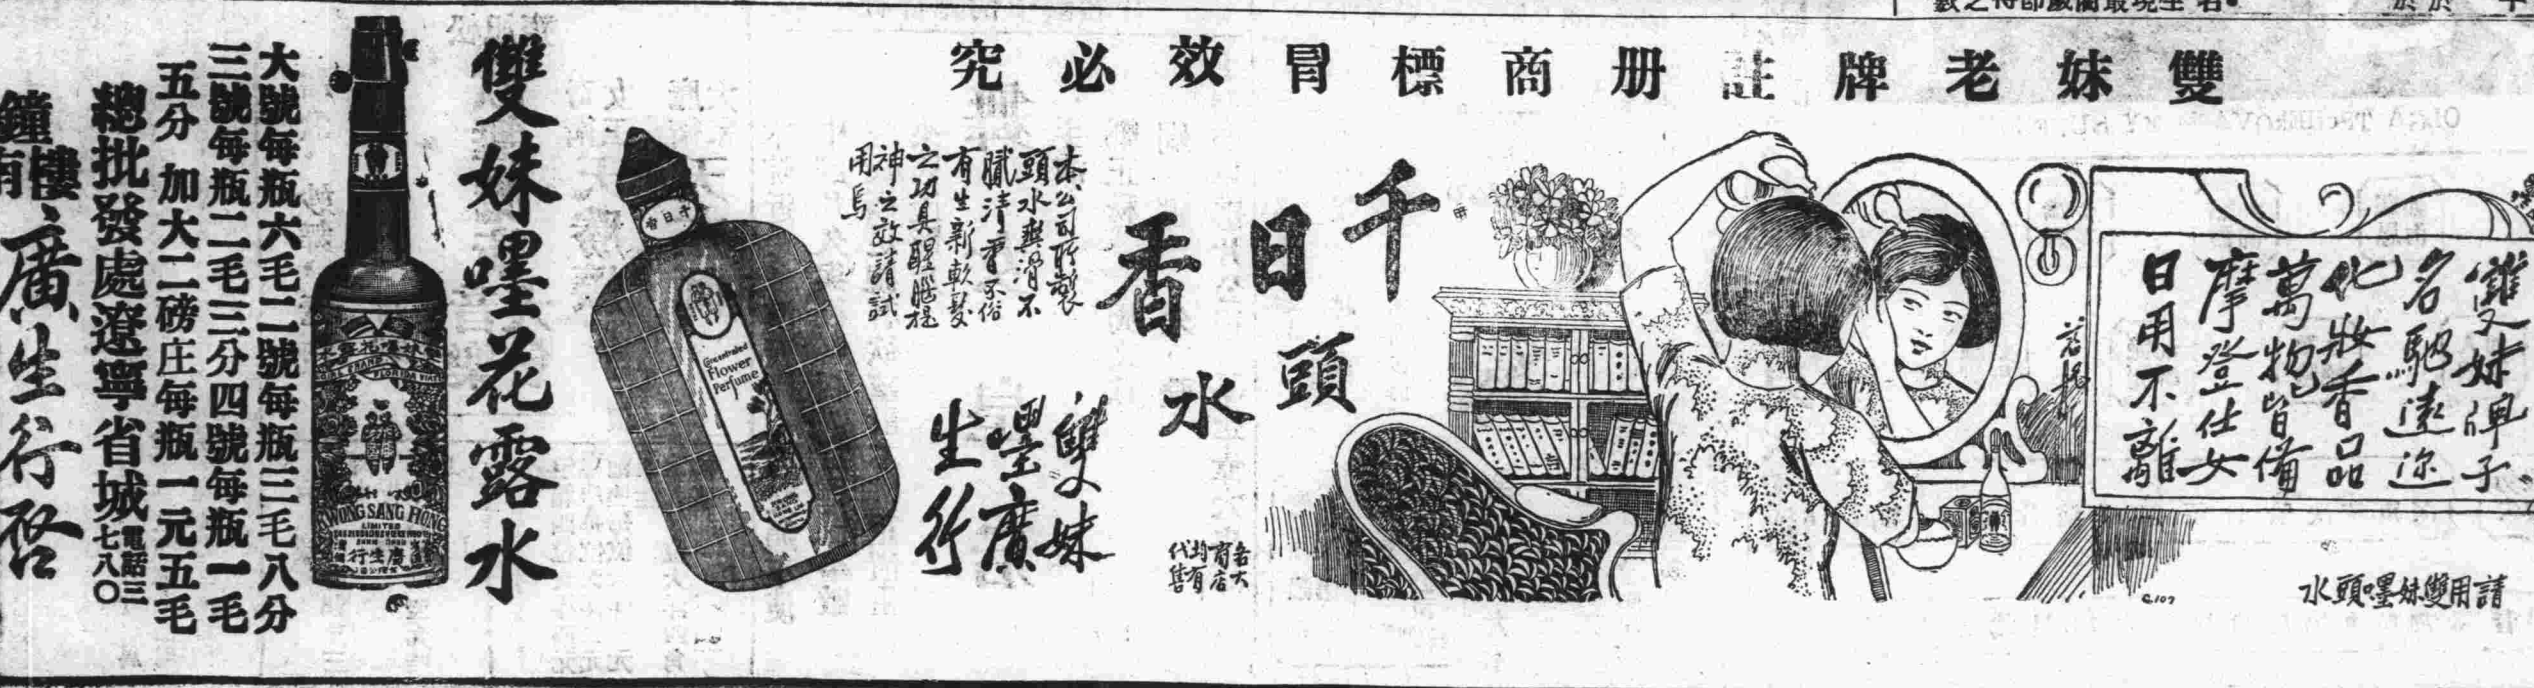 雙妹老牌註册商標冒效必究
雙妹嘿子
名馳遠迩
化妝香品
萬物皆備
摩登仕女
日用不離
請用雙妹嚜頭水
千日香
頭水
本公司所製
頭水與滑不
膩清香不俗
有生新軟髮
之功具醒腦提
神之效請試
用焉
雙妹
嚜廣
生行
各大
商店
均有
代售
千日香
Concentrated
Flower
Perfume
雙妹嚜花露水
FLORIDA WATER
KWONG SANG HONG
LIMITED
廣生行
大號每瓶六毛二號每瓶三毛八分
三號每瓶二毛三分四號每瓶一毛
五分 加大二磅庄每瓶一元五毛
總批發處遼寧省城電話三七八〇
鐘樓南
廣生行啓